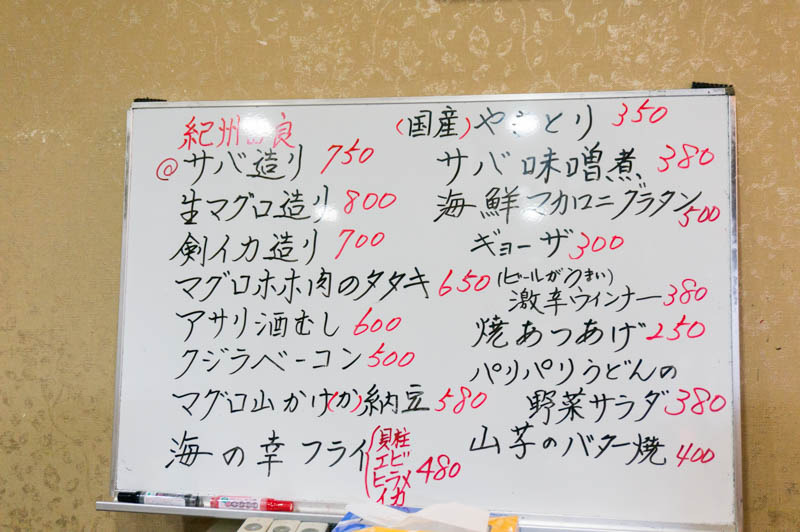 紀州 良
@サバ造り 750
生マグロ造り 800
剣イカ造り 700
マグロホホ肉のタタキ 650
アサリ酒むし 600
クジラベーコン 500
マグロ山かけ(か)納豆 580
海の幸フライ 貝柱 エビ ヒラメ イカ 480
(国産)やきとり 350
サバ味噌煮 380
海鮮マカロニグラタン 500
ギョーザ 300
(ビールがうまい)
激辛ウインナー 380
焼あつあげ 250
パリパリうどんの
野菜サラダ 380
山芋のバター焼 400